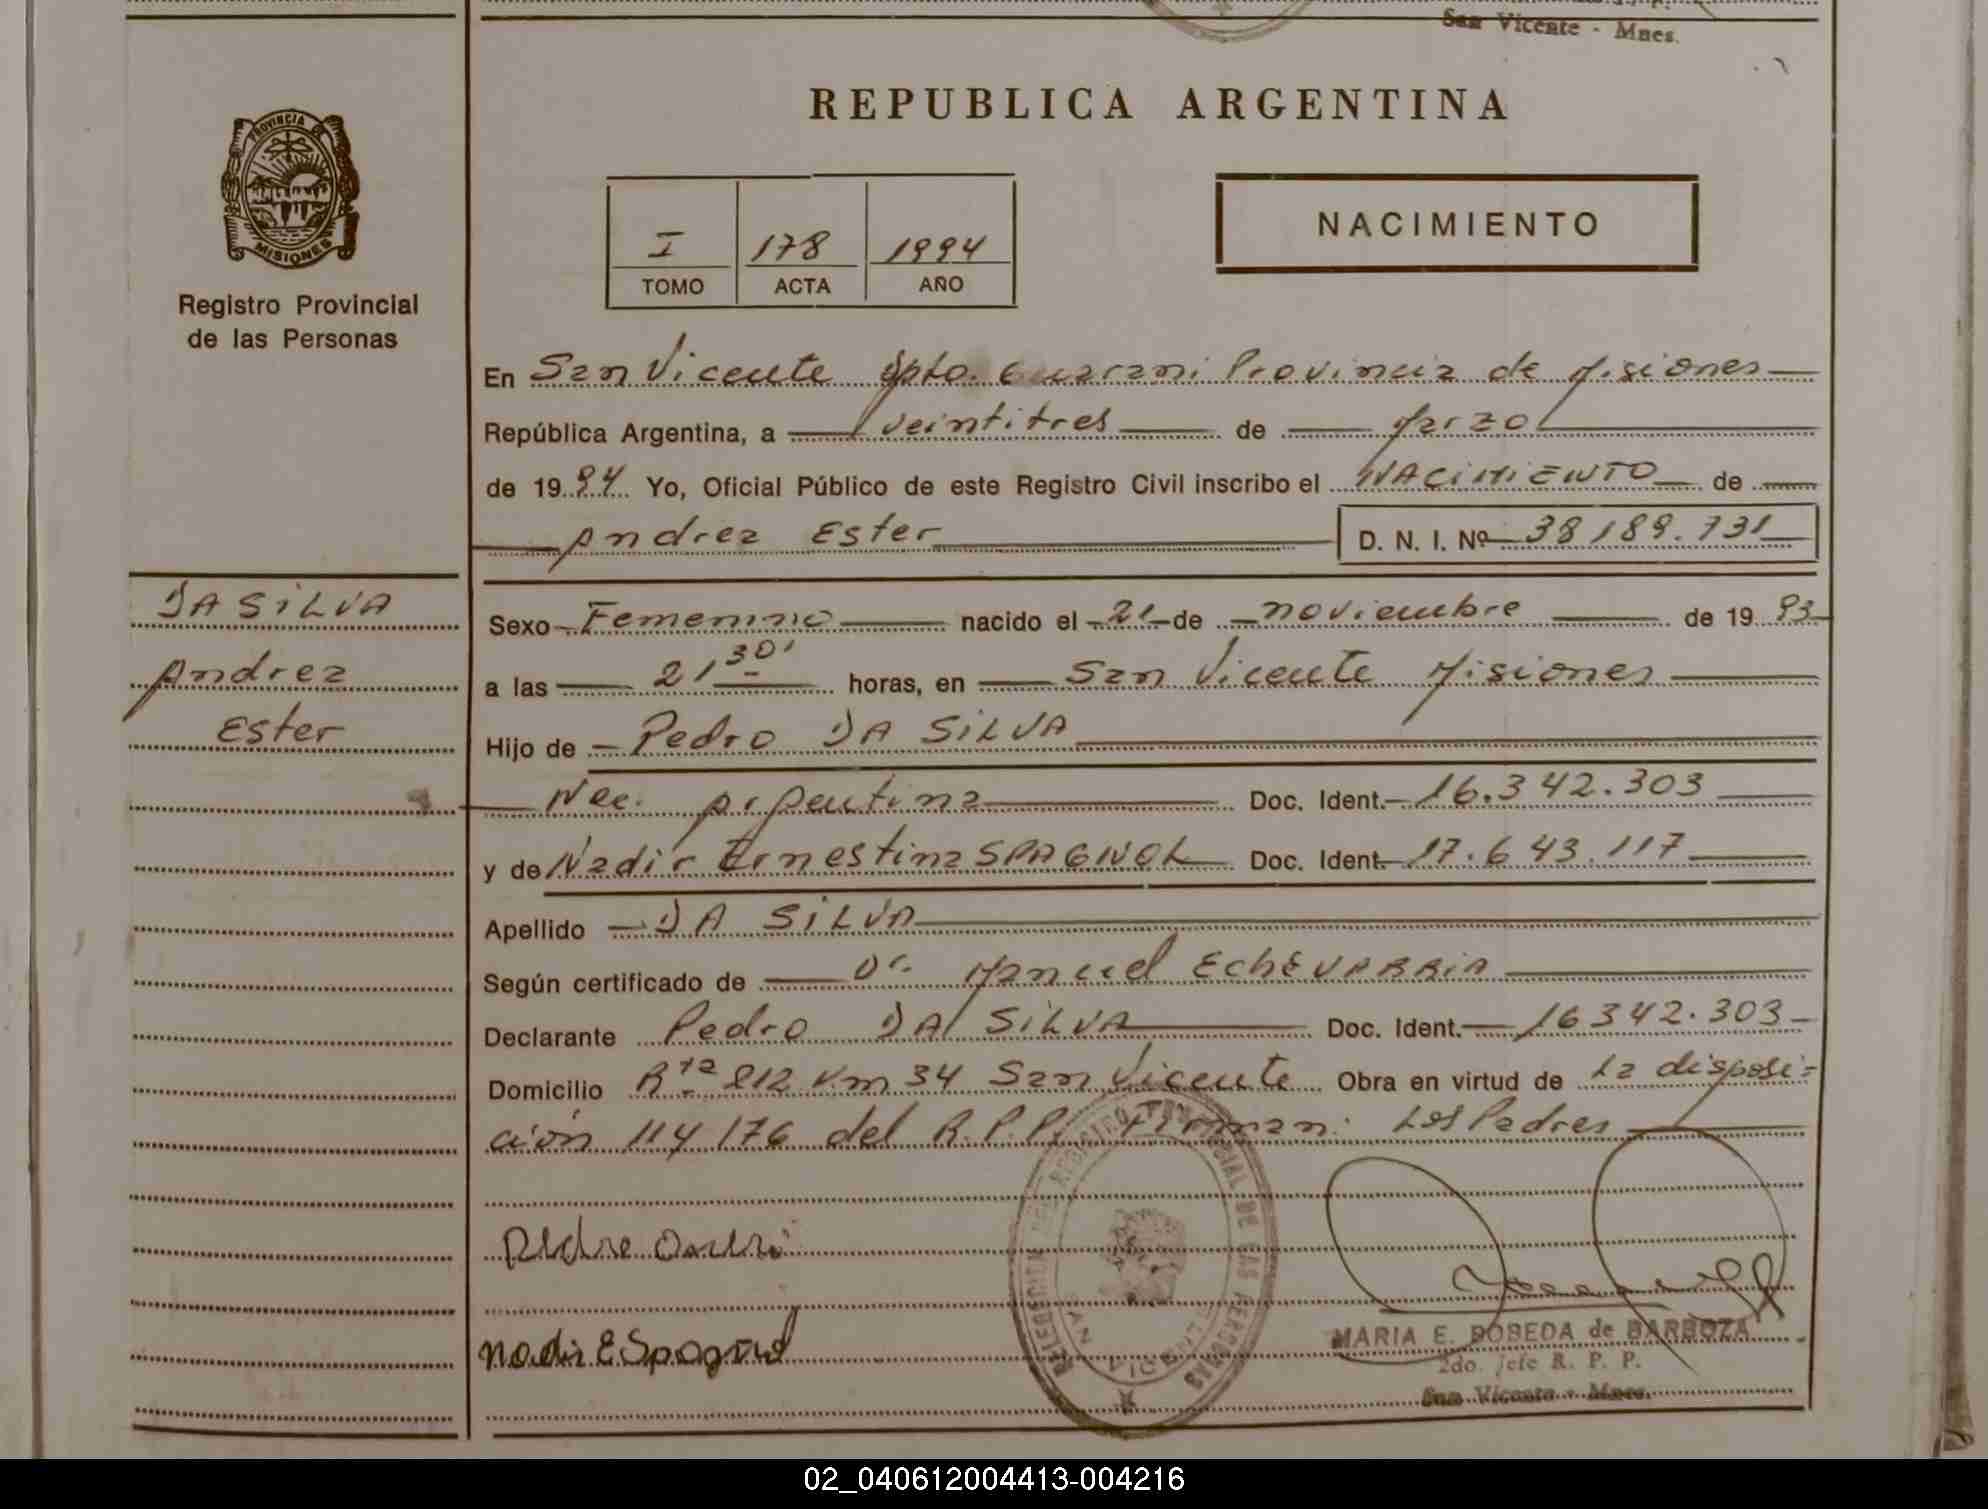 San Vicente - Mnes.
REPUBLICA ARGENTINA
PROVINCIA DE
MISIONES
Registro Provincial
de las Personas
I 178 1994
TOMO ACTA AÑO
NACIMIENTO
En San Vicente Dpto. Guarani Provincia de Misiones
República Argentina, a veintitres de Marzo
de 1994 Yo, Oficial Público de este Registro Civil inscribo el NACIMIENTO de
Andrea Ester D. N. I. Nº 38189.731
DA SILVA
Andrea
Ester
Sexo Femenino nacido el 21 de noviembre de 1993
a las 21 30' horas, en San Vicente Misiones
Hijo de Pedro DA SILVA
Nac. Argentina Doc. Ident. 16.342.303
y de Nadir Ernestina SPAGNOL Doc. Ident. 17.643.117
Apellido DA SILVA
Según certificado de Dr. Manuel ECHEVARRIA
Declarante Pedro DA SILVA Doc. Ident. 16342.303
Domicilio Rta 212 Km 34 San Vicente Obra en virtud de la disposi=
ción 114/76 del R.P.P. Firman: Los Padres
REGISTRO PROVINCIAL DE LAS PERSONAS
DELEGACION
SAN VICENTE
Nadir E Spagnol
MARIA E. BOBEDA de BARBOZA
2do. Jefe R. P. P.
San Vicente - Mnes.
02_040612004413-004216